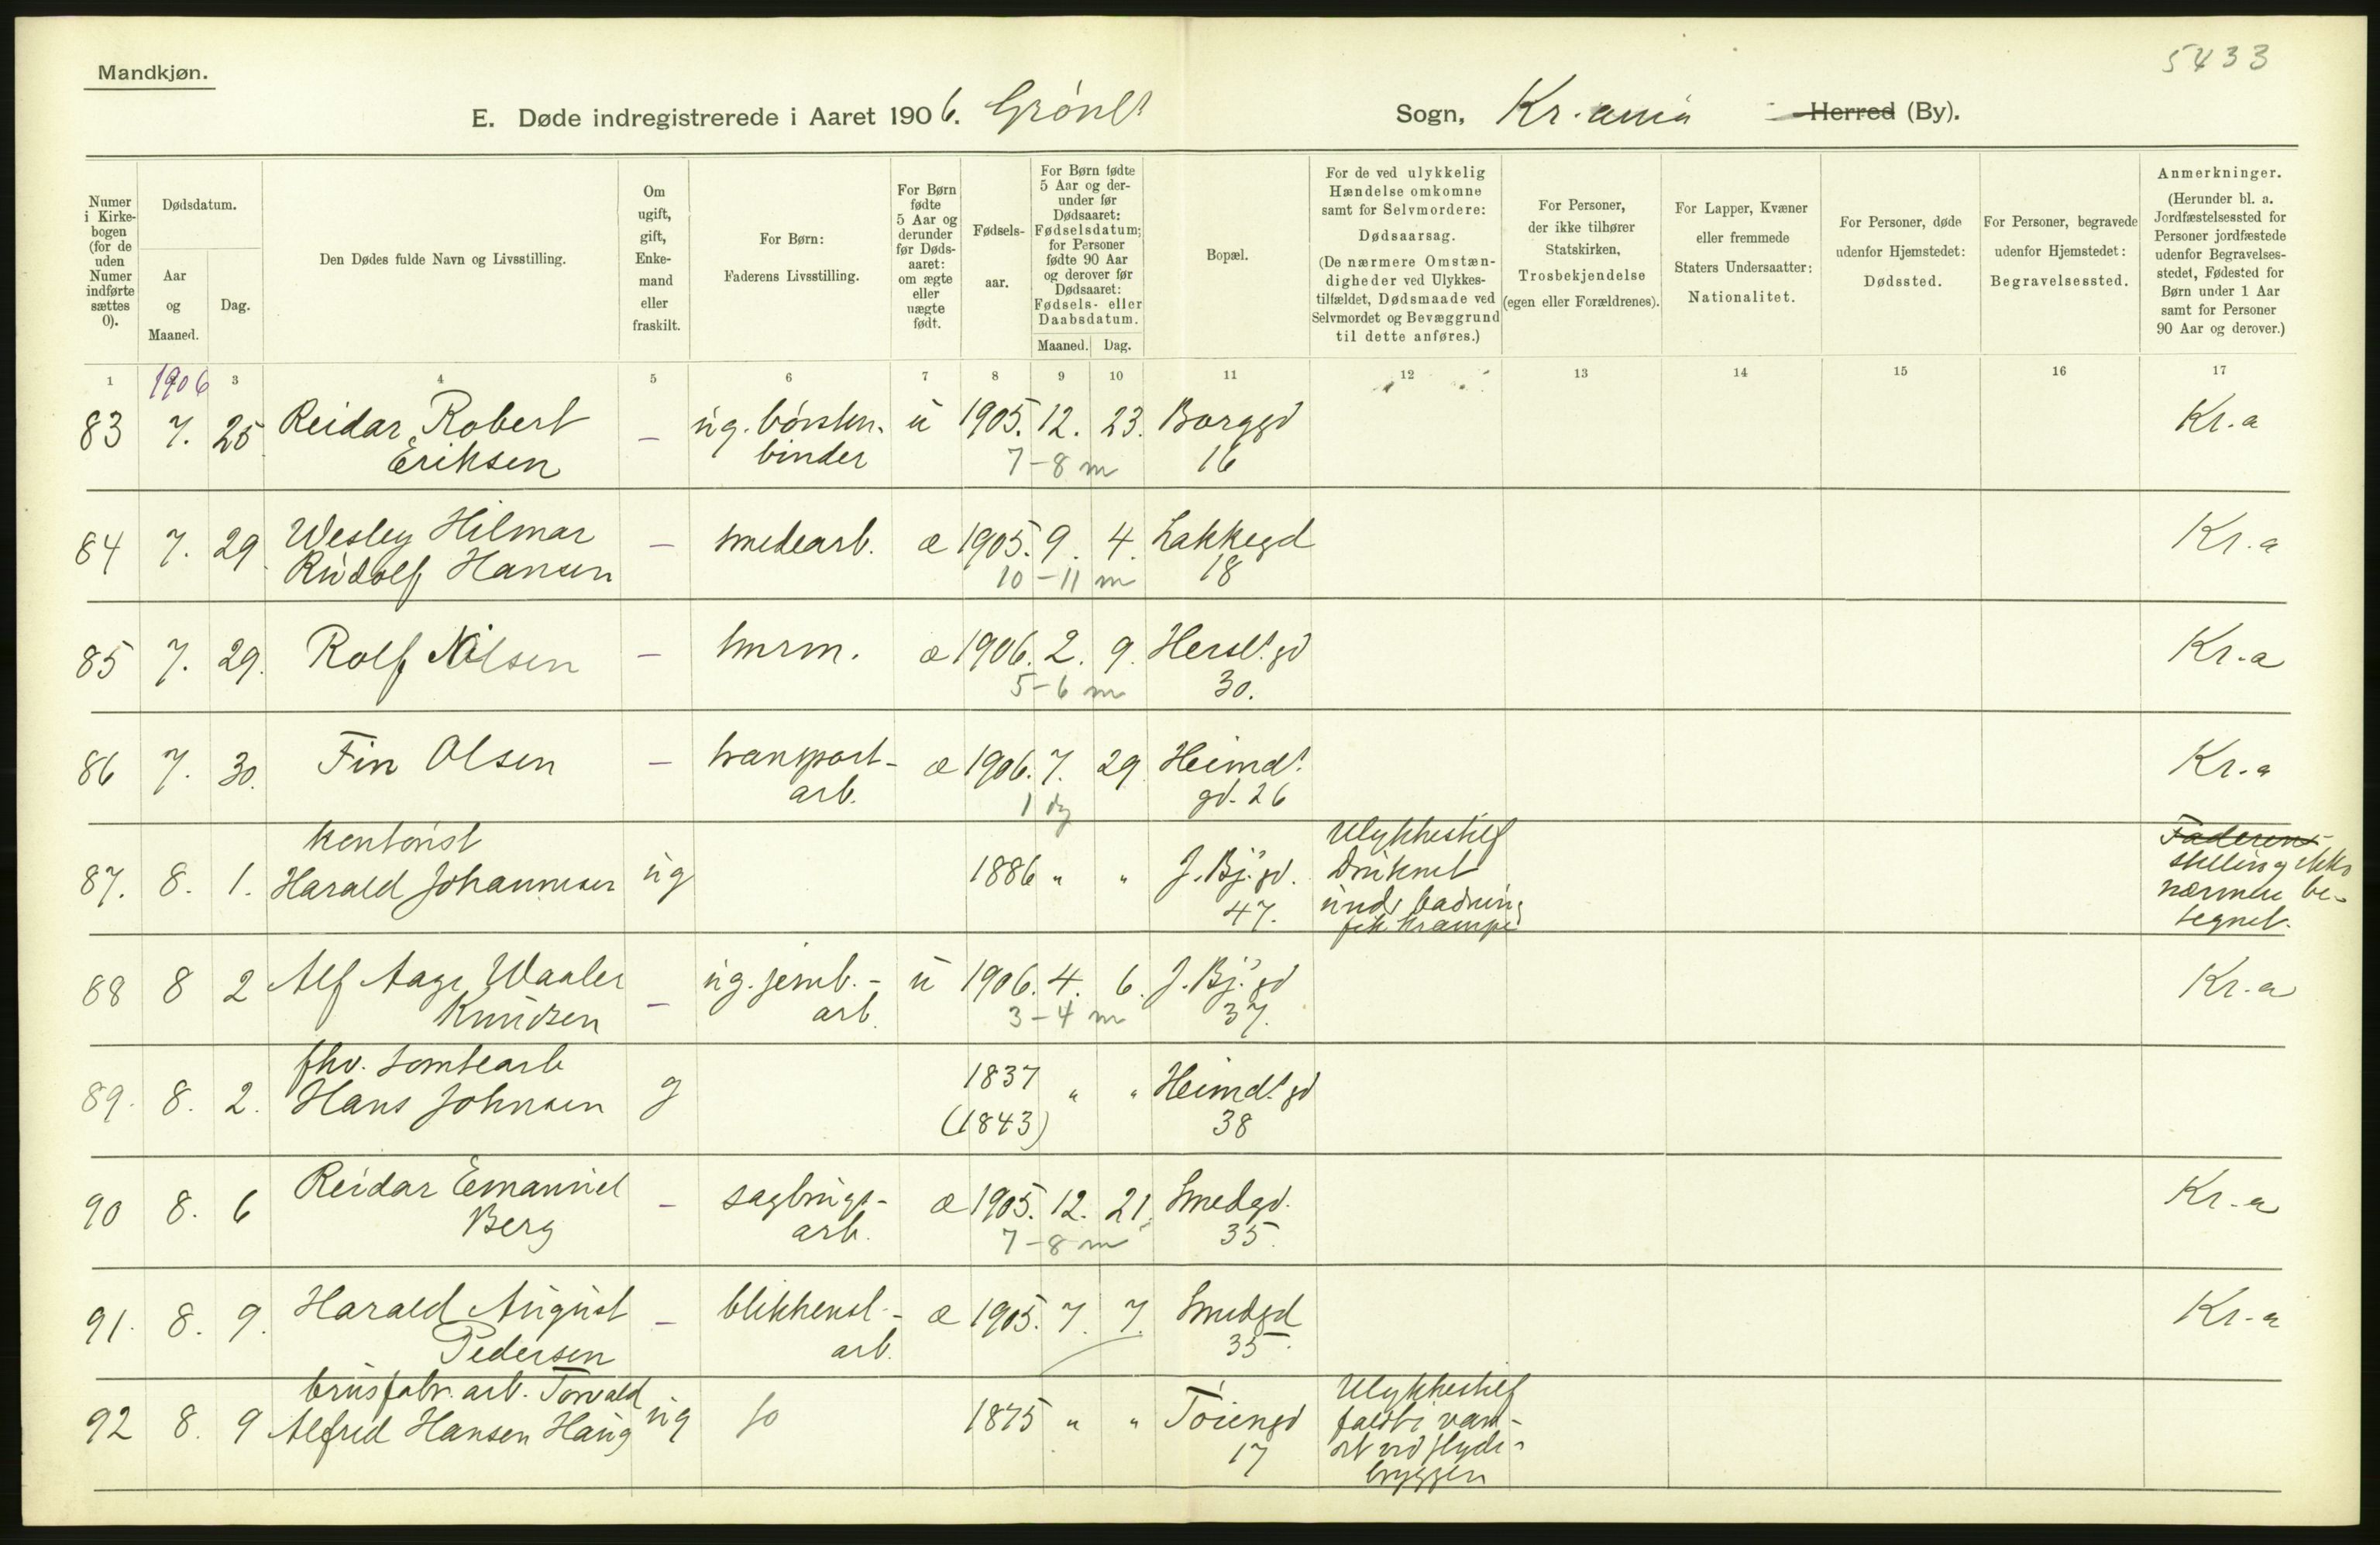 5433
Mandkjøn.
E. Døde indregistrerede i Aaret 1906. Grønl! Sogn, Kr.ania Herred (By).
Numer i Kirkebogen (for de uden Numer indførte sættes 0).
Dødsdatum.
Aar og Maaned.
Dag.
Den Dødes fulde Navn og Livsstilling.
Om ugift, gift, Enkemand eller fraskilt.
For Børn: Faderens Livsstilling.
For Børn fødte 5 Aar og derunder før Dødsaaret: om ægte eller uægte født.
Fødselsaar.
For Børn fødte 5 Aar og derunder før Dødsaaret: Fødselsdatum; for Personer fødte 90 Aar og derover før Dødsaaret: Fødsels- eller Daabsdatum.
Maaned. Dag.
Bopæl.
For de ved ulykkelig Hændelse omkomne samt for Selvmordere: Dødsaarsag. (De nærmere Omstændigheder ved Ulykkestilfældet, Dødsmaade ved Selvmordet og Bevæggrund til dette anføres.)
For Personer, der ikke tilhører Statskirken, Trosbekjendelse (egen eller Forældrenes).
For Lapper, Kvæner eller fremmede Staters Undersaatter: Nationalitet.
For Personer, døde udenfor Hjemstedet: Dødssted.
For Personer, begravede udenfor Hjemstedet: Begravelsessted.
Anmerkninger. (Herunder bl. a. Jordfæstelsessted for Personer jordfæstede udenfor Begravelsesstedet, Fødested for Børn under 1 Aar samt for Personer 90 Aar og derover.)
1 3 4 5 6 7 8 9 10 11 12 13 14 15 16 17
1906
83 7. 25 Reidar Robert – ug. børsten- u 1905. 12. 23. Borggd Kr.a
Eriksen binder 7-8 m 16
84 7. 29 Wesley Hilmar – smedearb. æ 1905. 9. 4. Lakkegd Kr.a
Rudolf Hansen 10-11 m 18
85 7. 29. Rolf Nilsen – murm. æ 1906. 2. 9. Hersl! gd Kr.a
5-6 m 30.
86 7. 30. Fin Olsen – transport- æ 1906. 7. 29 Heimd! Kr.a
arb. 1 dg gd. 26
kontorist Ulykkestilf Faderens
87. 8. 1. Harald Johannesen ug 1886 " " J. Bj. gd. Druknet stilling ikke
47. und badning nærmere be-
fik krampe tegnet.
88 8 2 Alf Aage Waaler – ug. jernb.- u 1906. 4. 6. J. Bj. gd Kr.a
Knudsen arb. 3-4 m 37.
fhv. tomtearb
89. 8. 2. Hans Johnsen g 1837 " " Heimd! gd
(1843) 38
90 8. 6 Reidar Emanuel – sagbrugs- æ 1905. 12. 21. Smedgd. Kr.a
Berg arb. 7-8 m 35.
91. 8. 9. Harald August – blikkensl.- æ 1905. 7. 7. Smedgd Kr.a
Pedersen arb. 35.
brusfabr. arb. Torvald Ulykkestilf
92 8. 9 Alfred Hansen Haug ug 1875 " " Tøiengd faldt i van-
17 det ved flyde-
bryggen